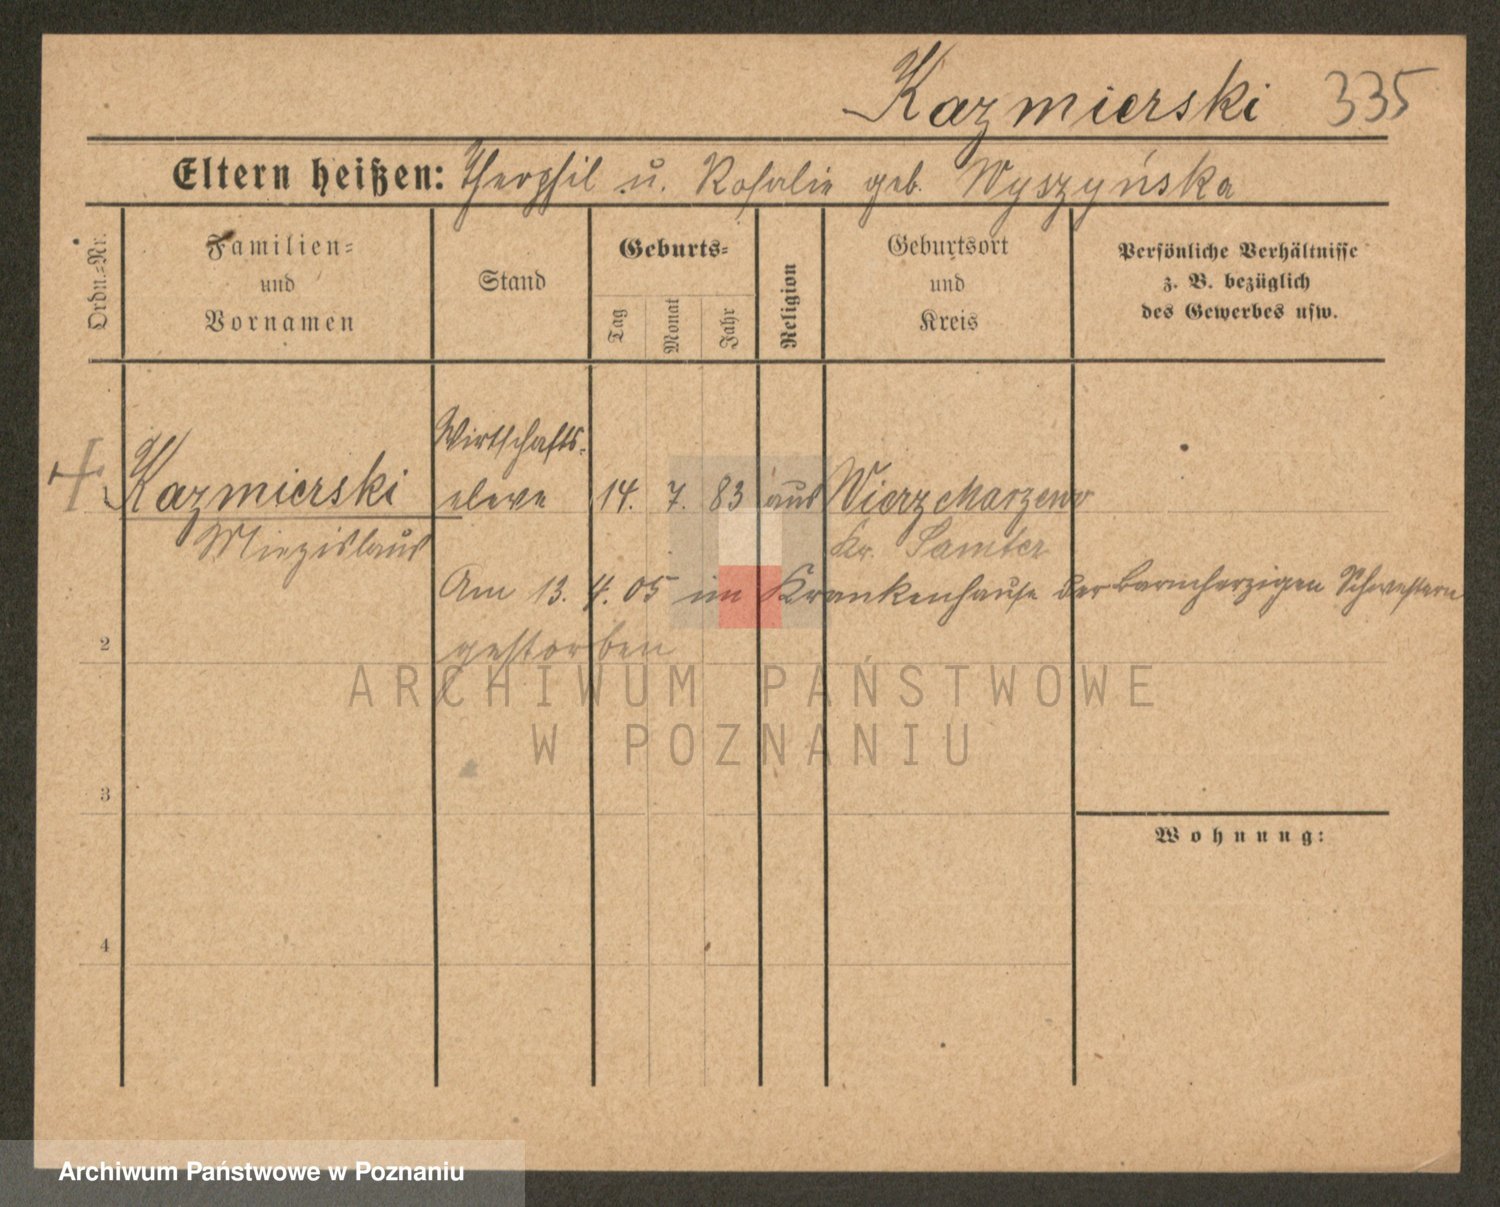 Kazmierski 335
Eltern heißen: Theophil u. Rosalie geb. Wyszyńska
Ordn.=Nr.
Familien=
und
Vornamen
Stand
Geburts=
Tag
Monat
Jahr
Religion
Geburtsort
und
Kreis
Persönliche Verhältnisse
z. B. bezüglich
des Gewerbes usw.
Wirtschafts-
Kazmierski eleve 14. 7. 83 aus Wierzchaczewo
Miezislaus Kr. Samter
Am 13. 4. 05 im Krankenhause der barmherzigen Schwestern
2 gestorben
ARCHIWUM PAŃSTWOWE
W POZNANIU
3
Wohnung:
4
Archiwum Państwowe w Poznaniu